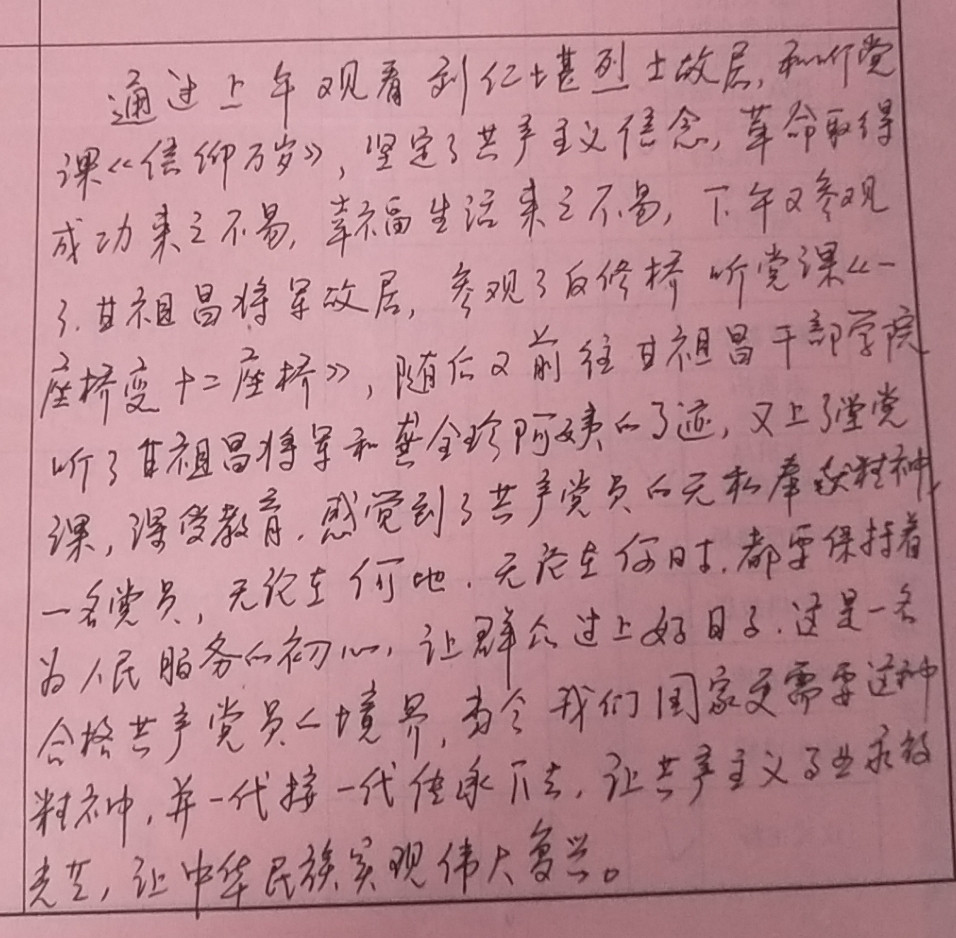 通过上午观看刘仁堪烈士故居,和听党
课《信仰万岁》,坚定了共产主义信念,革命取得
成功来之不易,幸福生活来之不易,下午又参观
了.甘祖昌将军故居,参观了反修桥 听党课《一
座桥变十二座桥》,随后又前往甘祖昌干部学院
听了甘祖昌将军和龚全珍阿姨的事迹,又上了堂党
课,深受教育.感觉到了共产党员的无私奉献精神,
一名党员,无论在何地.无论在何时.都要保持着
为人民服务的初心,让群众过上好日子.这是一名
合格共产党员的境界,当今我们国家更需要这种
精神,并一代接一代传承下去,让共产主义事业永放
光芒,让中华民族实现伟大复兴。